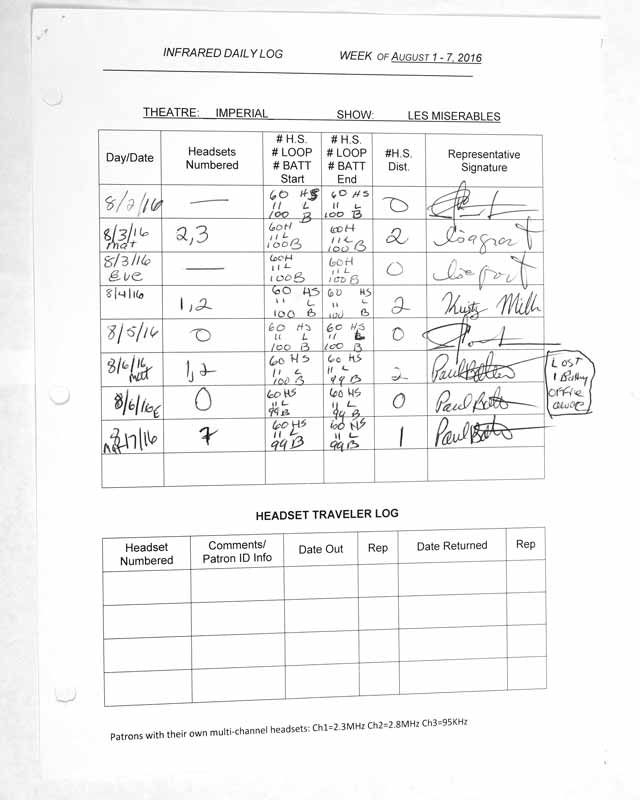 INFRARED DAILY LOG WEEK OF AUGUST 1 - 7, 2016
THEATRE: IMPERIAL SHOW: LES MISERABLES
Day/Date Headsets Numbered # H.S. # LOOP # BATT Start # H.S. # LOOP # BATT End #H.S. Dist. Representative Signature
8/2/16 — 60 HS 11 L 100 B 60 HS 11 L 100 B 0
8/3/16 mat 2,3 60H 11L 100B 60H 11L 100B 2
8/3/16 Eve — 60H 11L 100B 60H 11L 100B 0
8/4/16 1,2 60 HS 11 L 100 B 60 HS 11 L 100 B 2 Kristy
8/5/16 0 60 HS 11 L 100 B 60 HS 11 L 100 B 0
8/6/16 mat 1,2 60 HS 11 L 100 B 60 HS 11 L 99 B 2 Paul
Lost
1 Battery
office
aware
8/6/16 E 0 60 HS 11 L 99B 60 HS 11 L 99 B 0 Paul
8/7/16 mat 7 60 HS 11 L 99B 60 HS 11 L 99B 1 Paul
HEADSET TRAVELER LOG
Headset Numbered Comments/ Patron ID Info Date Out Rep Date Returned Rep
Patrons with their own multi-channel headsets: Ch1=2.3MHz Ch2=2.8MHz Ch3=95KHz